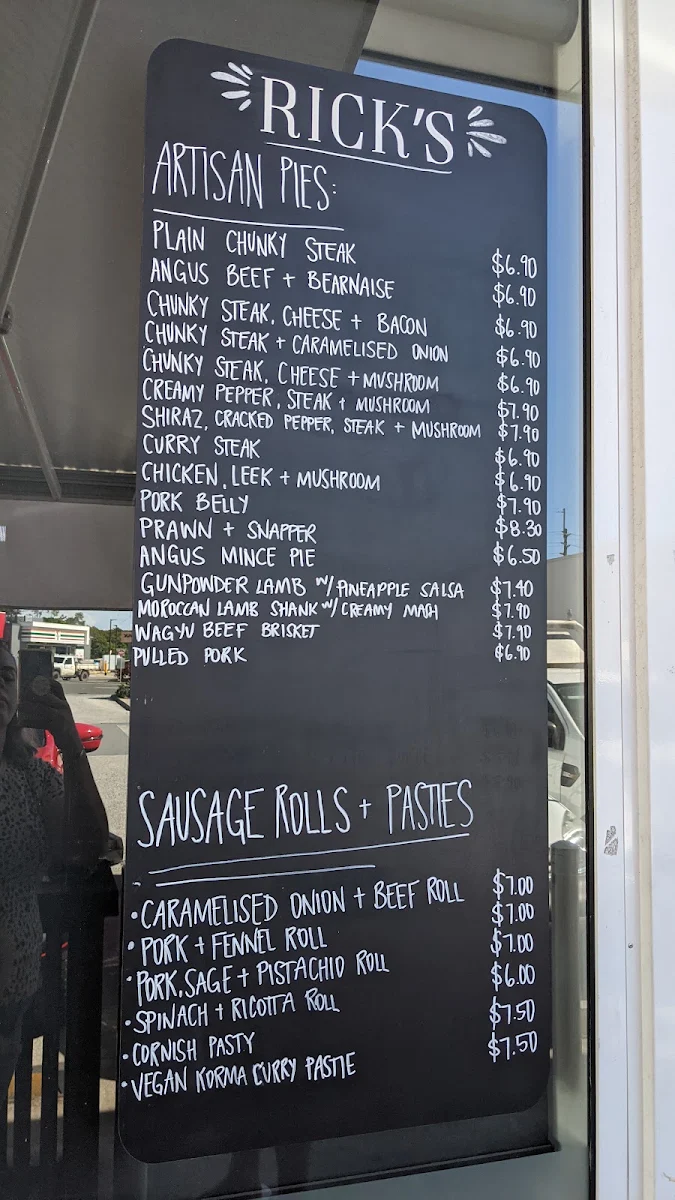 RICK'S
ARTISAN PIES:
PLAIN CHUNKY STEAK $6.90
ANGUS BEEF + BEARNAISE $6.90
CHUNKY STEAK, CHEESE + BACON $6.90
CHUNKY STEAK + CARAMELISED ONION $6.90
CHUNKY STEAK, CHEESE + MUSHROOM $6.90
CREAMY PEPPER, STEAK + MUSHROOM $7.90
SHIRAZ, CRACKED PEPPER, STEAK + MUSHROOM $7.90
CURRY STEAK $6.90
CHICKEN, LEEK + MUSHROOM $6.90
PORK BELLY $7.90
PRAWN + SNAPPER $8.30
ANGUS MINCE PIE $6.50
GUNPOWDER LAMB W/ PINEAPPLE SALSA $7.40
MOROCCAN LAMB SHANK W/ CREAMY MASH $7.90
WAGYU BEEF BRISKET $7.90
PULLED PORK $6.90
SAUSAGE ROLLS + PASTIES
• CARAMELISED ONION + BEEF ROLL $7.00
• PORK + FENNEL ROLL $7.00
• PORK, SAGE + PISTACHIO ROLL $7.00
• SPINACH + RICOTTA ROLL $6.00
• CORNISH PASTY $7.50
• VEGAN KORMA CURRY PASTIE $7.50